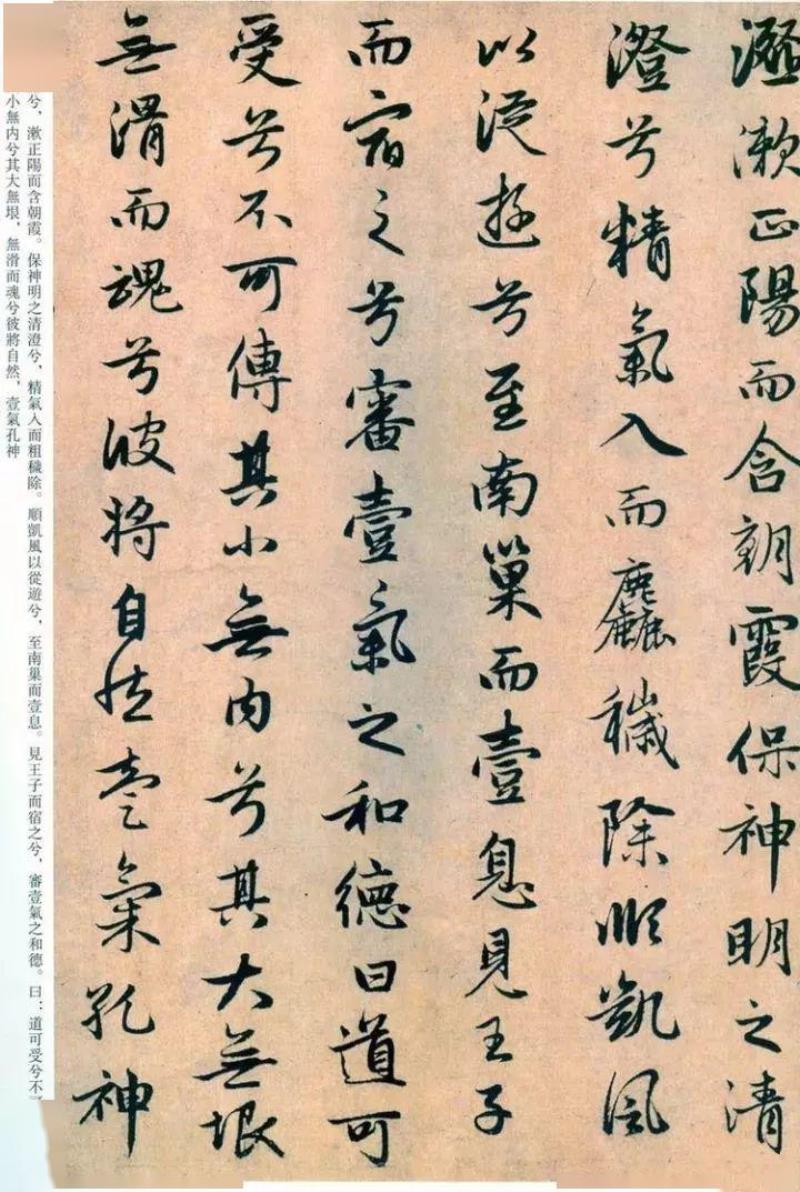 瀣漱正陽而含朝霞保神明之清
澄兮精氣入而麤穢除順凱風
以從遊兮至南巢而壹息見王子
而宿之兮審壹氣之和德曰道可
受兮不可傳其小無内兮其大無垠
無滑而魂兮彼將自然壹氣孔神
兮，漱正陽而含朝霞。保神明之清澄兮，精氣入而粗穢除。順凱風以從遊兮，至南巢而壹息。見王子而宿之兮，審壹氣之和德。曰：道可受兮不
小無内兮其大無垠，無滑而魂兮彼將自然，壹氣孔神